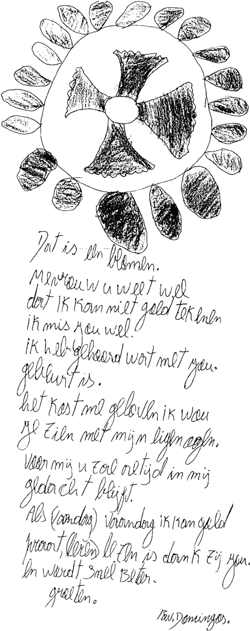 Dat is een blomen.
Mevrouw u weet wel
dat ik kan niet goed tekenen
ik mis you wel.
ik heb gehoord wat met you.
gebeurt is.
het kost me geloven ik wou
je zien met mijn eigen ogen.
voor mij u zal altijd in mij
gedacht blijft.
Als (vandag) vandag ik kan goed
praat, lezen is dank zij you.
En wordt snel beter.
groeten.
Domingos.